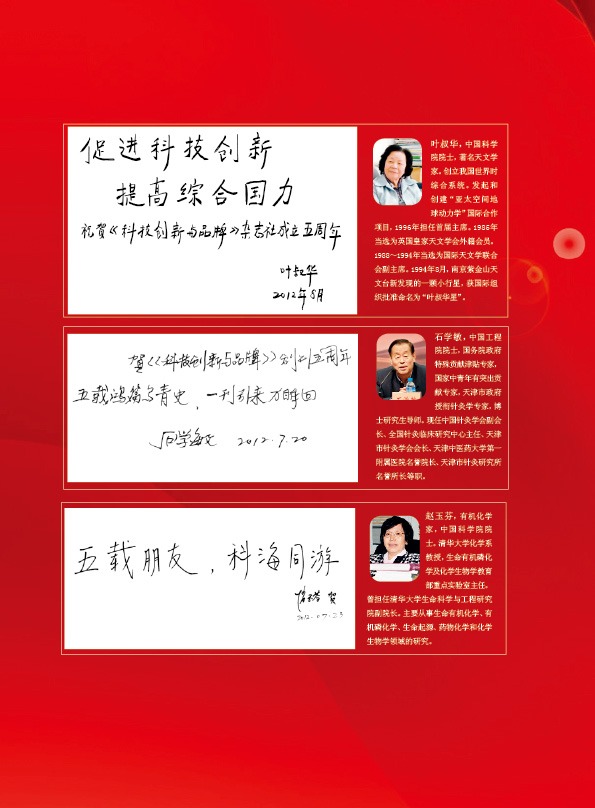 促进科技创新
提高综合国力
祝贺《科技创新与品牌》杂志社成立五周年
叶叔华
2012年8月
叶叔华，中国科学
院院士，著名天文学
家。创立我国世界时
综合系统。发起和
创建“亚太空间地
球动力学”国际合作
项目，1996年担任首届主席。1985年
当选为英国皇家天文学会外籍会员，
1988～1994年当选为国际天文学联合
会副主席。1994年8月，南京紫金山天
文台新发现的一颗小行星，获国际组
织批准命名为“叶叔华星”。
贺《科技创新与品牌》创刊五周年
五载鸿篇写青史，一刊引来万眸回
石学敏 2012.7.20
石学敏，中国工程
院院士，国务院政府
特殊贡献津贴专家，
国家中青年有突出贡
献专家，天津市政府
授衔针灸学专家，博
士研究生导师。现任中国针灸学会副会
长、全国针灸临床研究中心主任、天津
市针灸学会会长、天津中医药大学第一
附属医院名誉院长、天津市针灸研究所
名誉所长等职。
五载朋友，科海同游
赵玉芬 贺
2012.07.23
赵玉芬，有机化学
家，中国科学院院
士。清华大学化学系
教授，生命有机磷化
学及化学生物学教育
部重点实验室主任。
曾担任清华大学生命科学与工程研究
院副院长。主要从事生命有机化学、有
机磷化学、生命起源、药物化学和化学
生物学领域的研究。